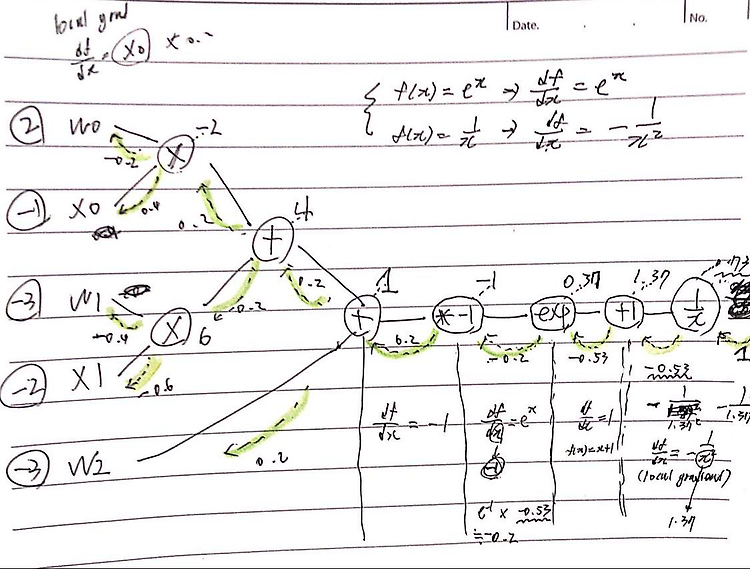 local grad
df/dx = x0 x 0.2
Date.
No.
f(x) = e^x → df/dx = e^x
f(x) = 1/x → df/dx = -1/x²
2 W0
-0.2
× -2
-1 X0
0.4
0.2
+ 4
-3 W1
-0.4
× 6
0.2
0.2
-2 X1
-0.6
-3 W2
0.2
+ 1
0.2
*-1 -1
-0.2
exp 0.37
-0.53
+1 1.37
-0.53
1/x 0.73
1
df/dx = -1
df/dx = e^x
-1
e^-1 x -0.53
≒ -0.2
df/dx = 1
f(x) = x+1
-1/1.37²
-1/1.37
df/dx = -1/x²
(local gradient)
1.37